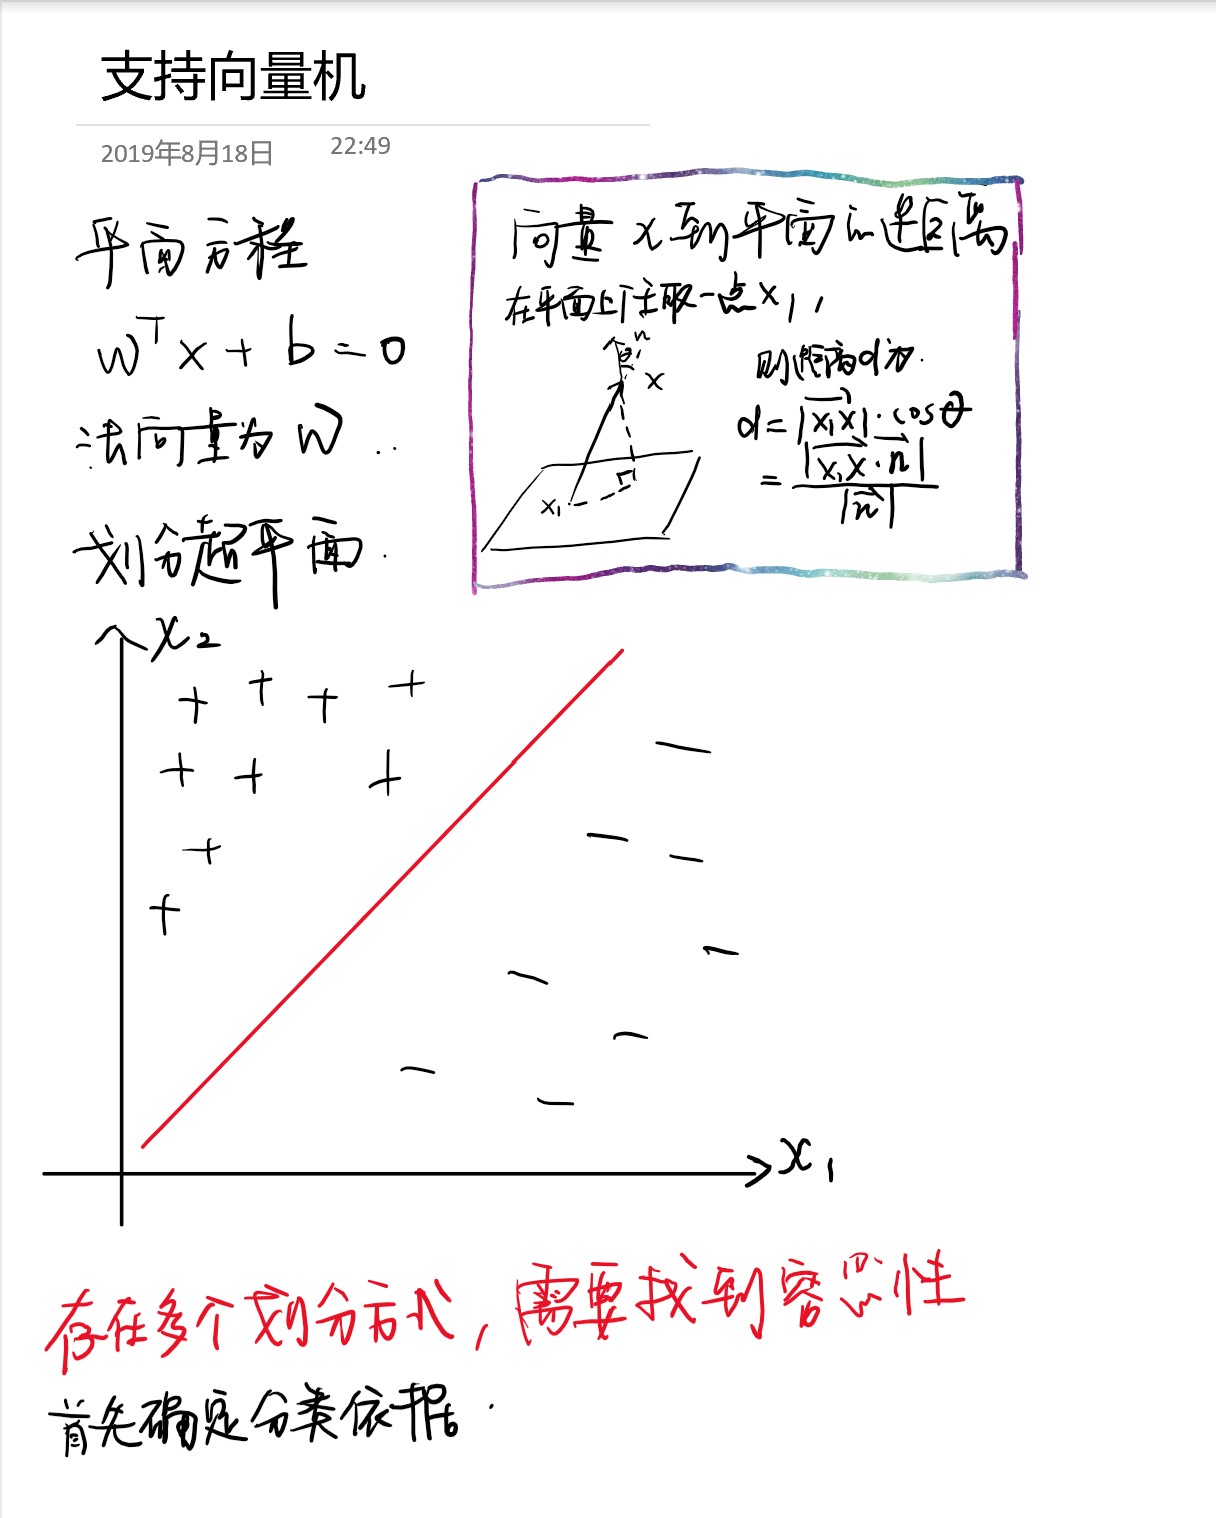 支持向量机
2019年8月18日 22:49
平面方程
w^T x + b = 0
法向量为 w
划分超平面.
向量 x 到平面的距离
在平面上任取一点 x₁,
n
θ
x
x₁
则距离d为.
d = |x₁x|·cosθ
= |x₁x·n| / |n|
x₂
+ + + +
+ + +
+
+
x₁
存在多个划分方式,需要找到容忍性
首先确定分类依据.